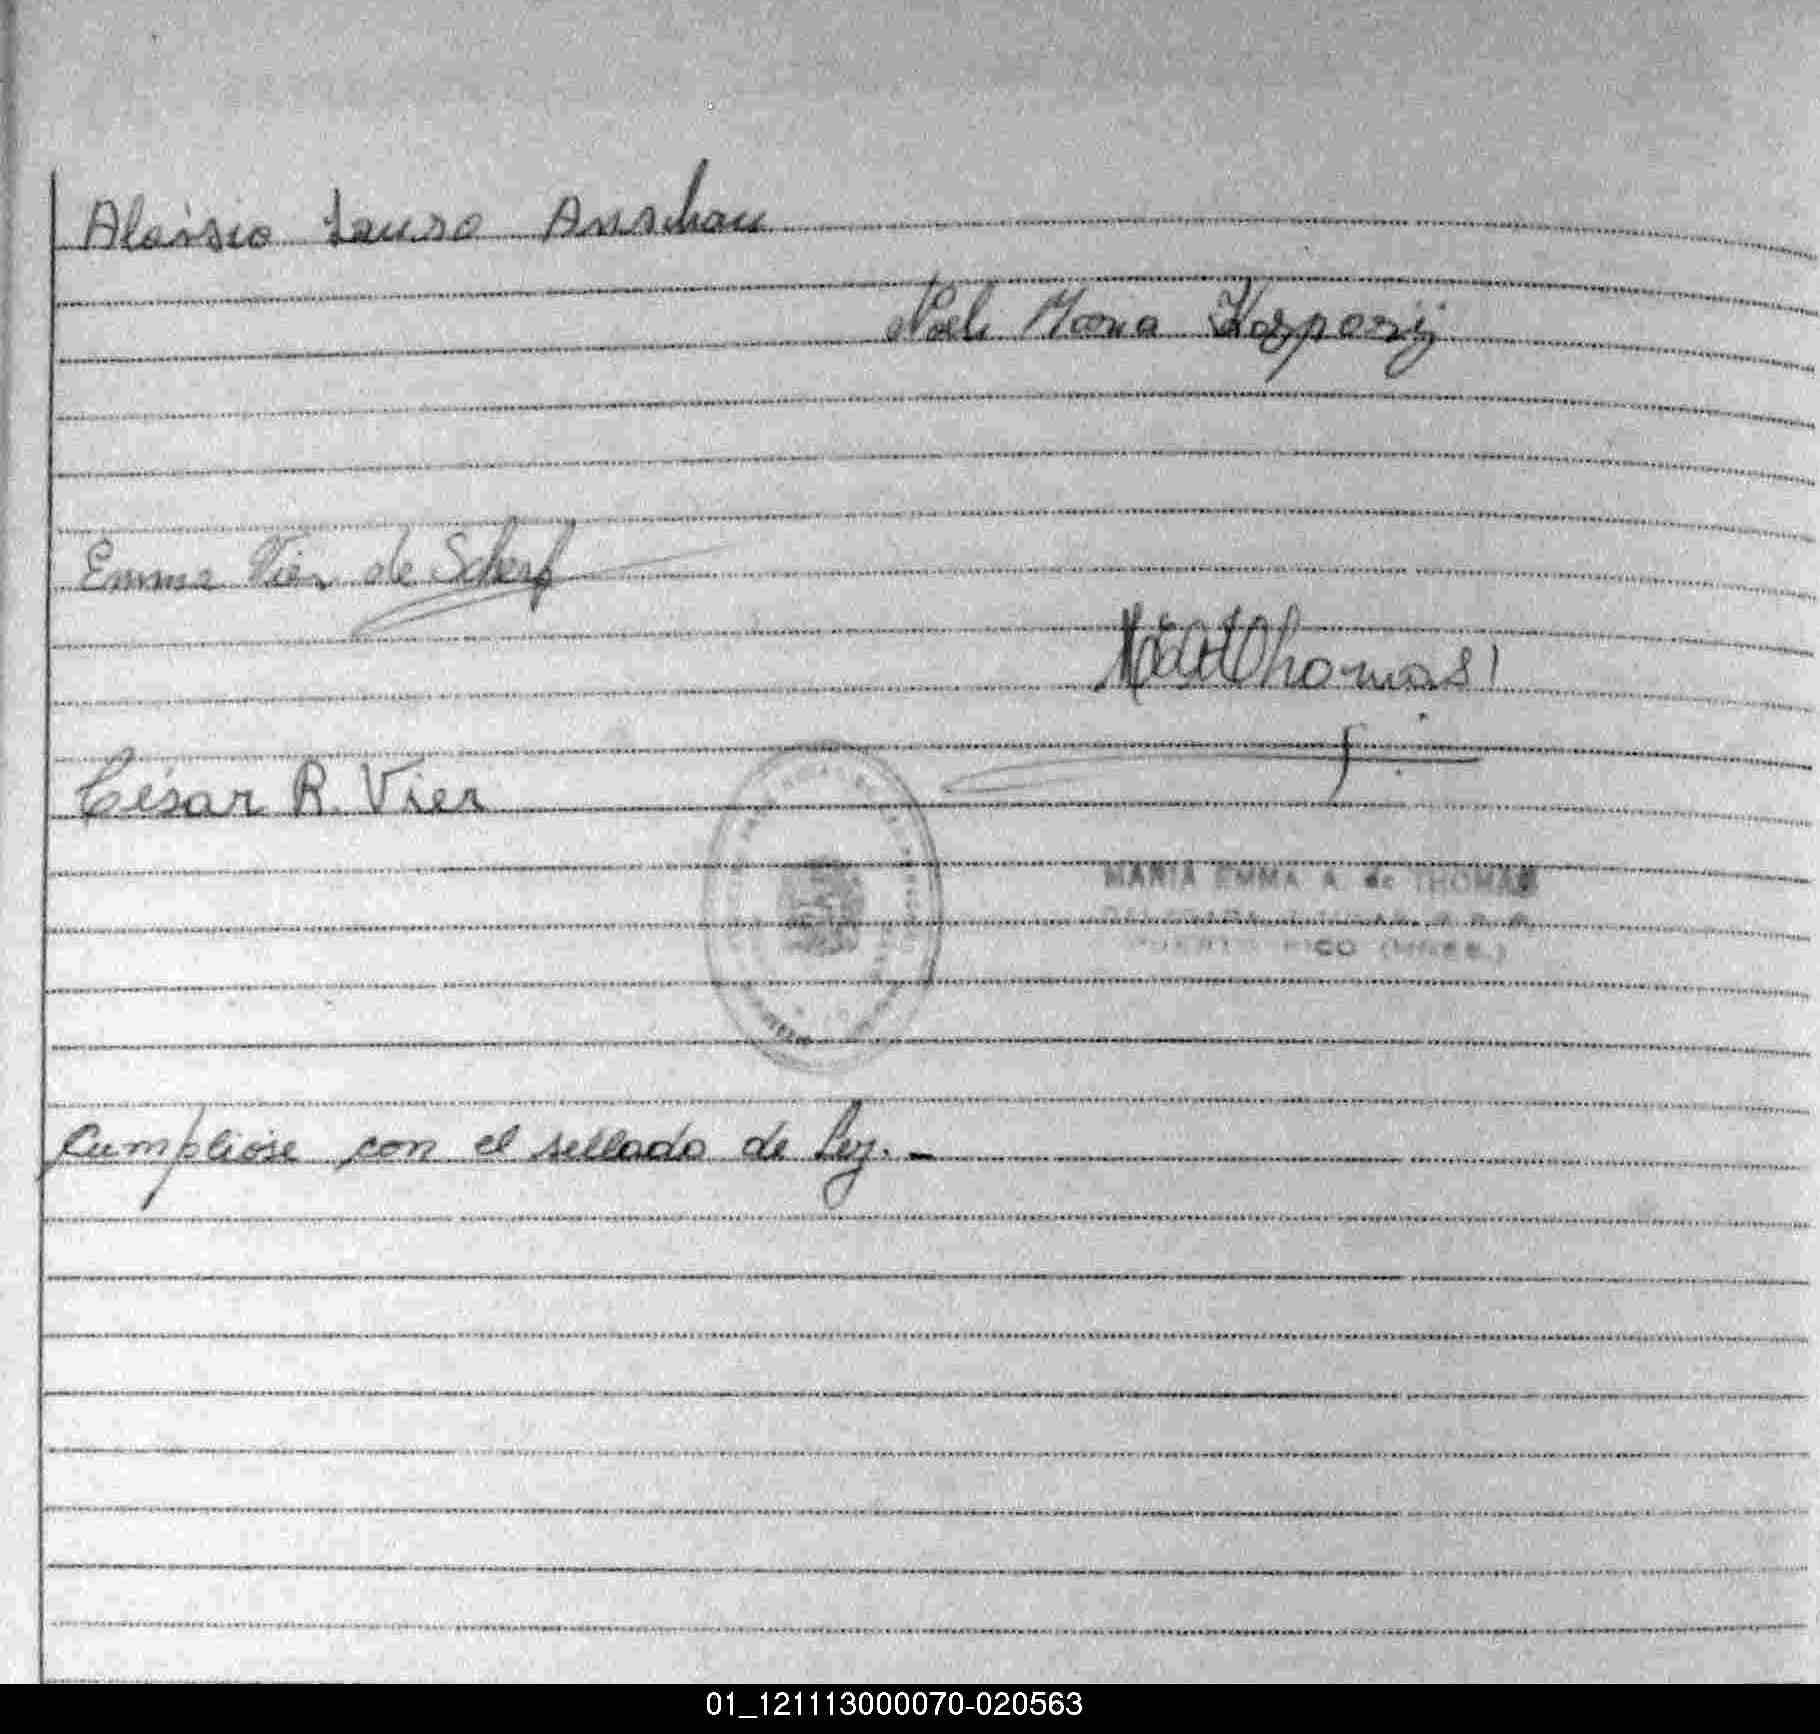 Aloísio Lauro Anschau
Maria
Emma Vier de Scherf
Thomas
César R. Vier
MARIA EMMA A. de THOMAS
PUERTO RICO (MNES.)
Cumplióse con el sellado de Ley. -
01_121113000070-020563